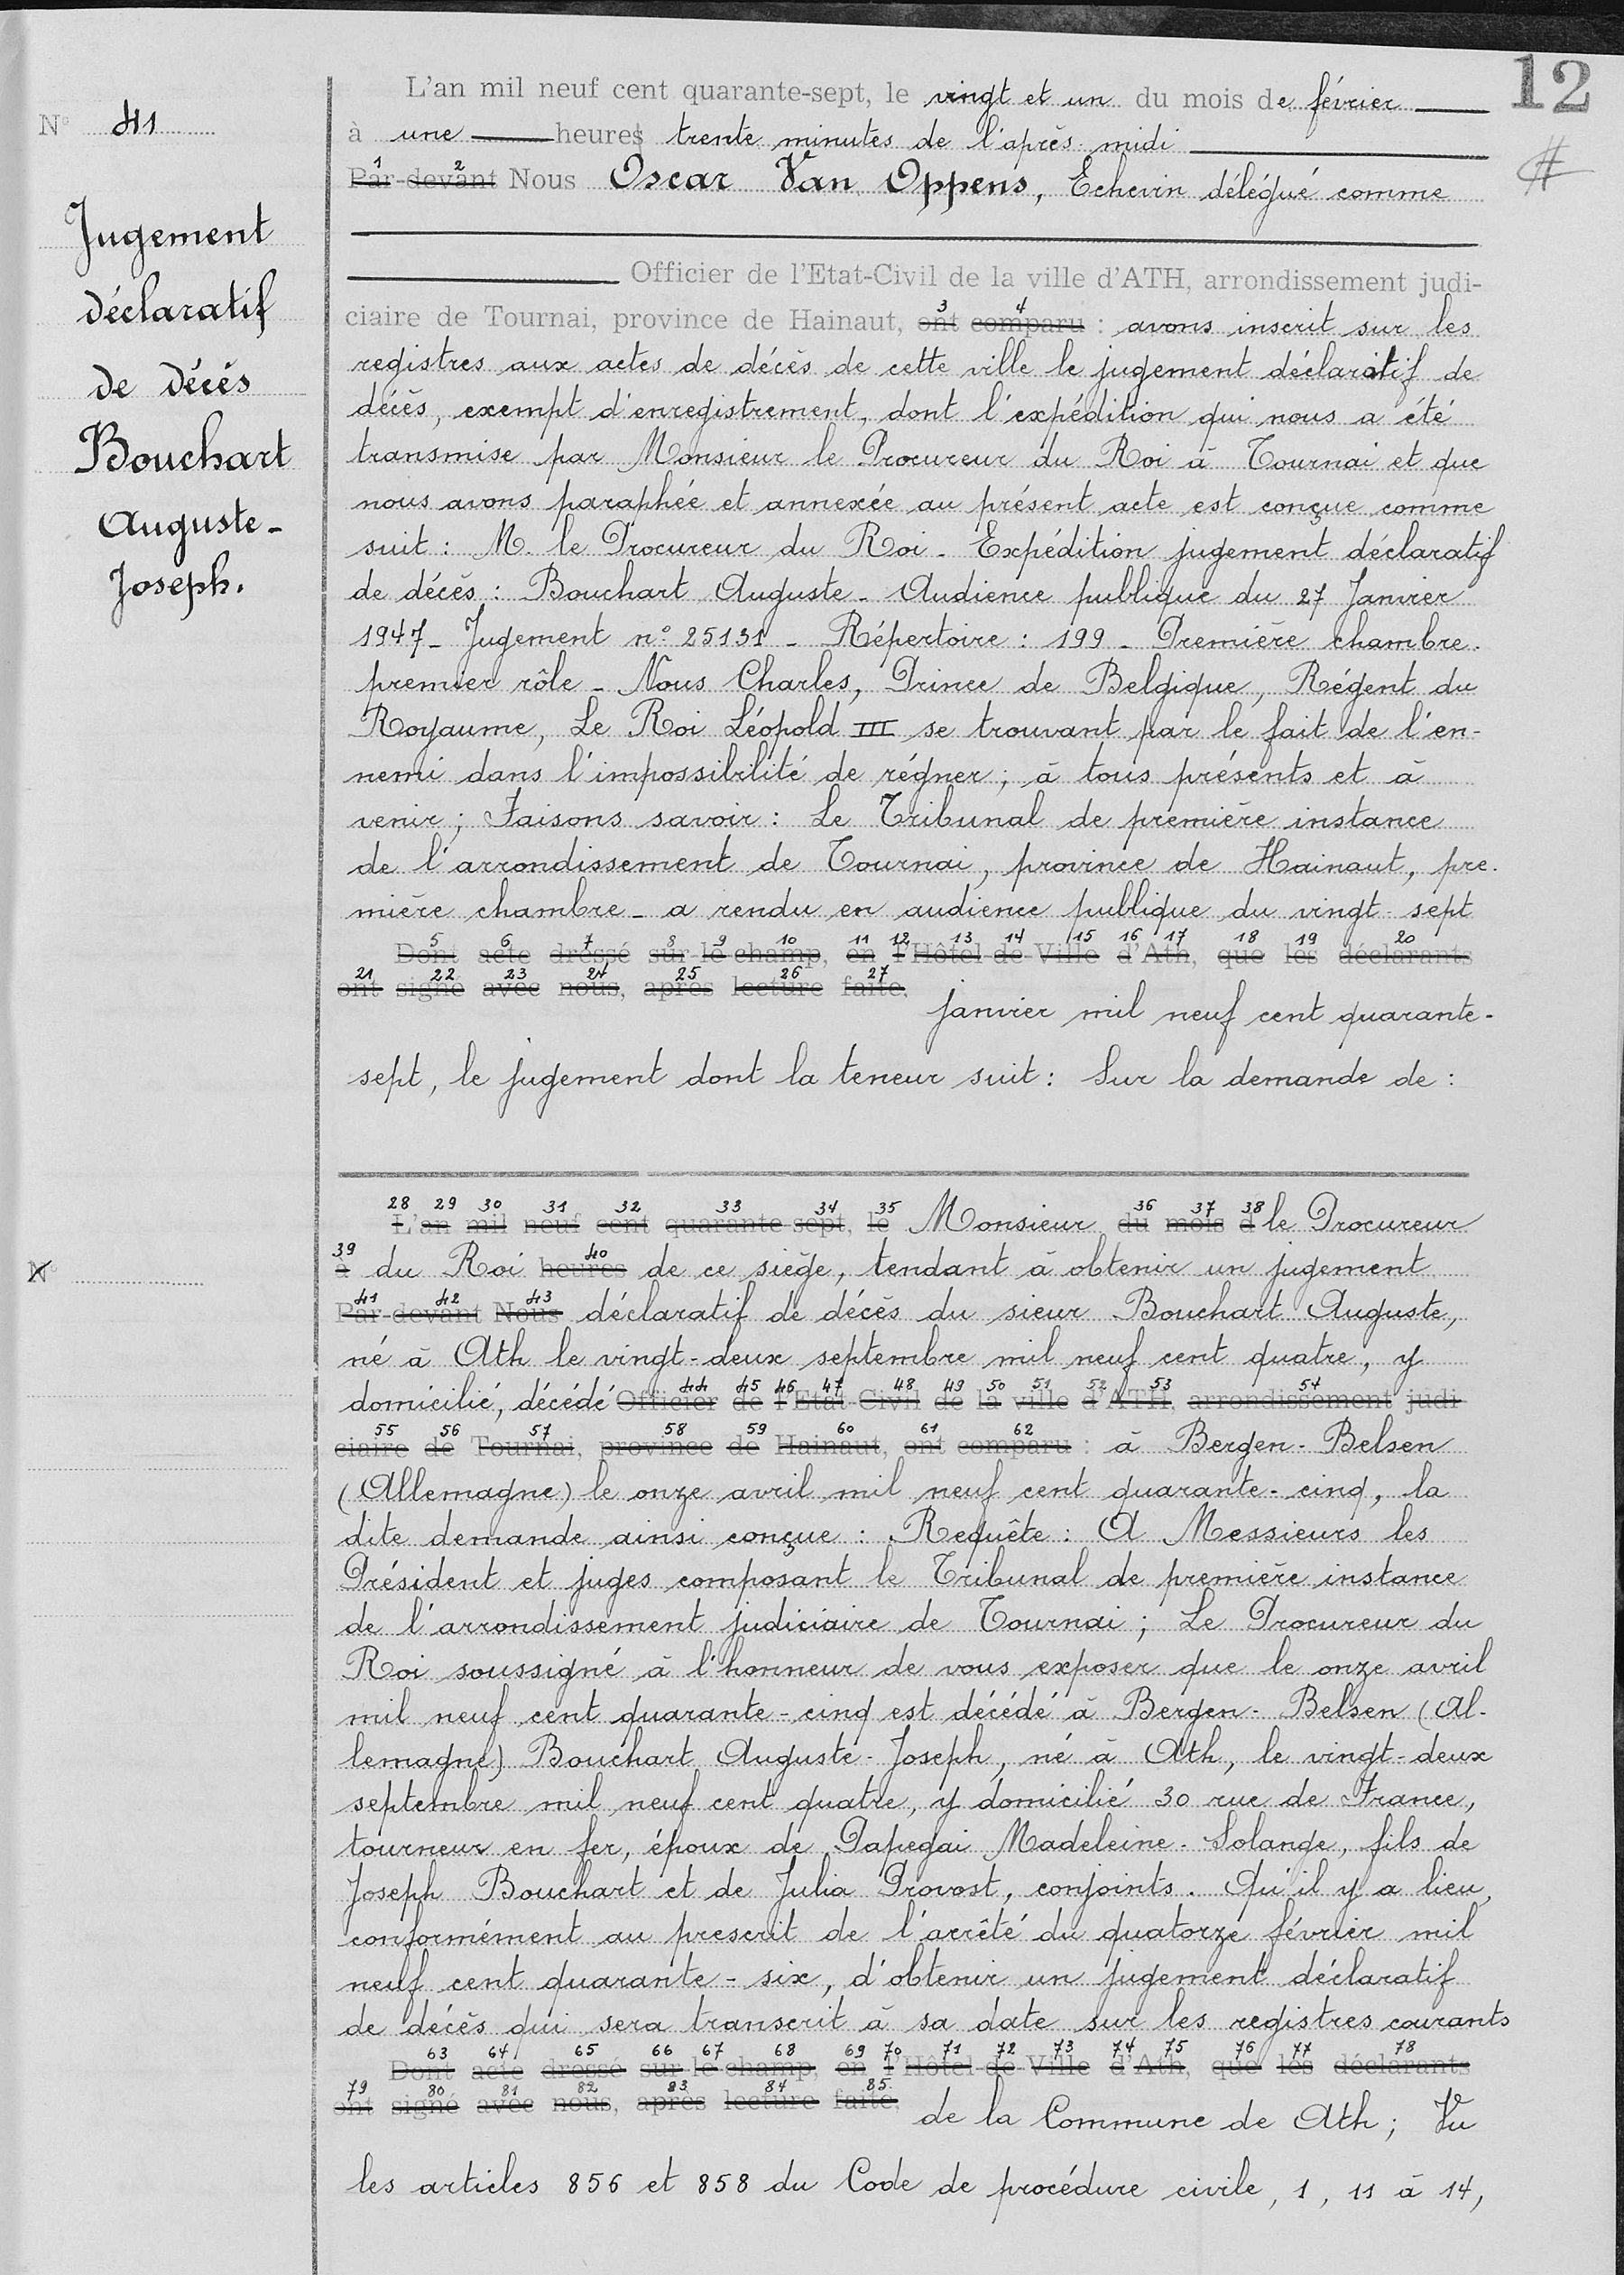 12
#
N° 41
Jugement
déclaratif
de décès
Bouchart
Auguste-
Joseph.
L'an mil neuf cent quarante-sept, le vingt et un du mois de février
à une heures trente minutes de l'après-midi
1 2
Par-devant Nous Oscar Van Oppens, Echevin délégué comme
Officier de l'Etat-Civil de la ville d'ATH, arrondissement judi-
3 4
ciaire de Tournai, province de Hainaut, ont comparu : avons inscrit sur les
registres aux actes de décès de cette ville le jugement déclaratif de
décès, exempt d'enregistrement, dont l'expédition qui nous a été
transmise par Monsieur le Procureur du Roi à Tournai et que
nous avons paraphée et annexée au présent acte est conçue comme
suit : M. le Procureur du Roi - Expédition jugement déclaratif
de décès : Bouchart Auguste - Audience publique du 27 Janvier
1947 - Jugement n° 25131 - Répertoire : 199 - Première chambre.
premier rôle - Nous Charles, Prince de Belgique, Régent du
Royaume, Le Roi Léopold III se trouvant par le fait de l'en-
nemi dans l'impossibilité de régner ; à tous présents et à
venir ; Faisons savoir : Le Tribunal de première instance
de l'arrondissement de Tournai, province de Hainaut, pre-
mière chambre - a rendu en audience publique du vingt-sept
5 6 7 8 9 10 11 12 13 14 15 16 17 18 19 20
Dont acte dressé sur-le-champ, en l'Hôtel-de-Ville d'Ath, que les déclarants
21 22 23 24 25 26 27
ont signé avec nous, après lecture faite,
janvier mil neuf cent quarante-
sept, le jugement dont la teneur suit : Sur la demande de :
28 29 30 31 32 33 34 35 36 37 38
L'an mil neuf cent quarante-sept, le Monsieur du mois d le Procureur
39 40
N°
à du Roi heures de ce siège, tendant à obtenir un jugement
41 42 43
Par-devant Nous déclaratif de décès du sieur Bouchart Auguste,
né à Ath le vingt-deux septembre mil neuf cent quatre, y
44 45 46 47 48 49 50 51 52 53 54
domicilié, décédé Officier de l'Etat-Civil de la ville d'ATH, arrondissement judi-
55 56 57 58 59 60 61 62
ciaire de Tournai, province de Hainaut, ont comparu : à Bergen-Belsen
(Allemagne) le onze avril mil neuf cent quarante-cinq, la
dite demande ainsi conçue : Requête : A Messieurs les
Président et juges composant le Tribunal de première instance
de l'arrondissement judiciaire de Tournai ; Le Procureur du
Roi soussigné à l'honneur de vous exposer que le onze avril
mil neuf cent quarante-cinq est décédé à Bergen-Belsen (Al-
lemagne) Bouchart Auguste-Joseph, né à Ath, le vingt-deux
septembre mil neuf cent quatre, y domicilié 30 rue de France,
tourneur en fer, époux de Papegai Madeleine-Solange, fils de
Joseph Bouchart et de Julia Provost, conjoints. Qu'il y a lieu,
conformément au prescrit de l'arrêté du quatorze février mil
neuf cent quarante-six, d'obtenir un jugement déclaratif
de décès qui sera transcrit à sa date sur les registres courants
63 64 65 66 67 68 69 70 71 72 73 74 75 76 77 78
Dont acte dressé sur-le-champ, en l'Hôtel-de-Ville d'Ath, que les déclarants
79 80 81 82 83 84 85
ont signé avec nous, après lecture faite,
de la Commune de Ath ; Vu
les articles 856 et 858 du Code de procédure civile, 1, 11 à 14,